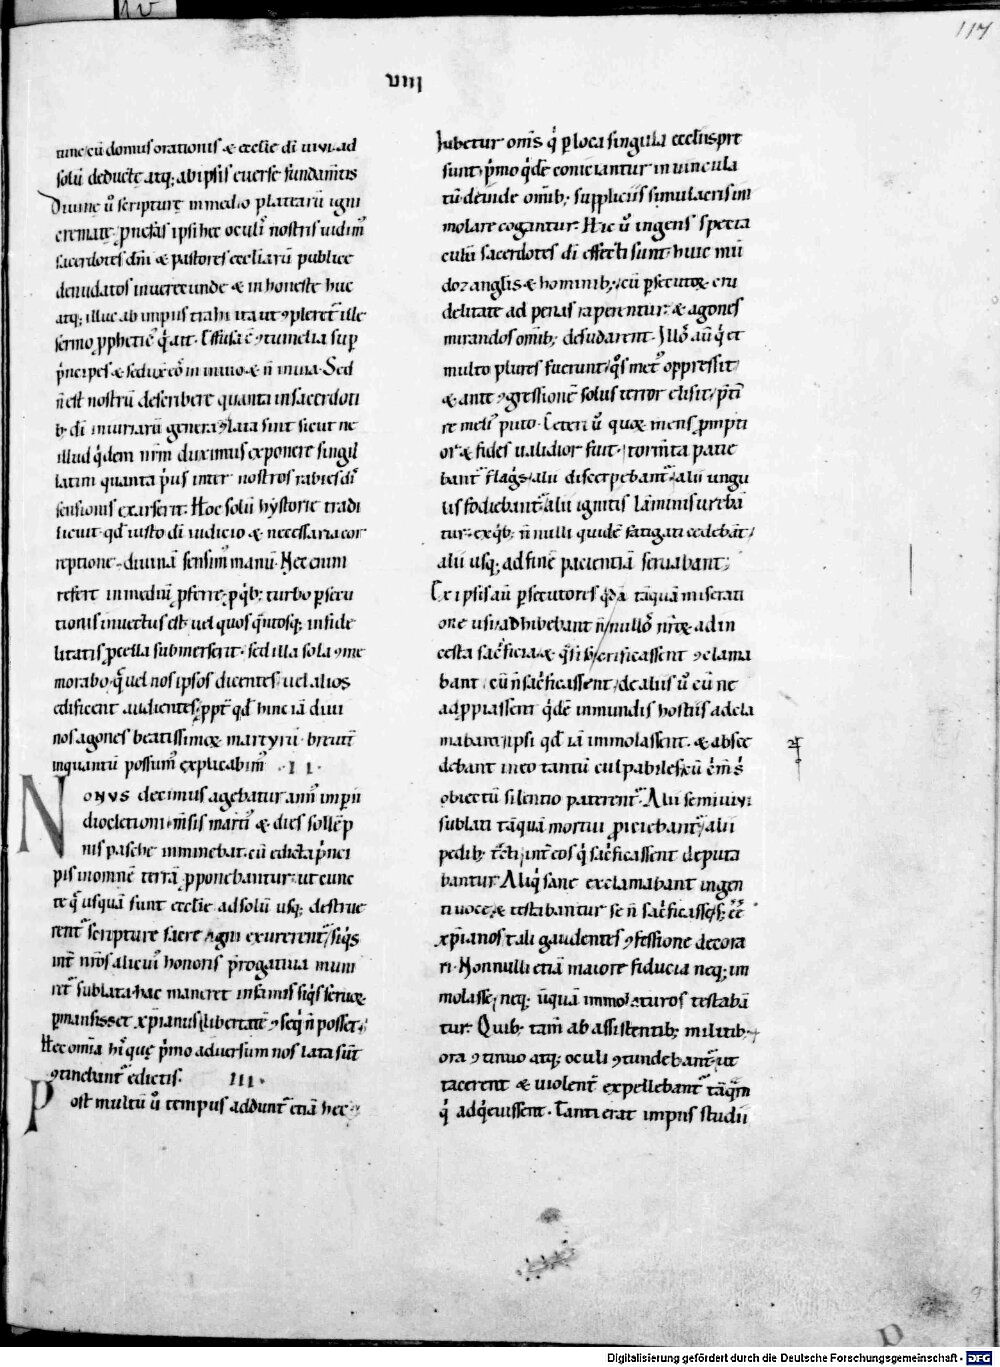 117
VIII
tunc cū domus orationis & ecclie di̅ uiui ad
solū deductę atq; ab ipsis euerse fundam̅tis
Diuine u̅ scripturę in medio platearū igni
cremate, p nefas ipsi hec oculi̅ nostris uidim᷒
sacerdotes dn̅i & pastores eccliarū publice
denudatos inuerecunde & inhoneste huc
atq; illuc ab impiis trahi ita ut ꝯpleret᷑ ille
sermo ꝓphetic᷒ q̇ ait. Effusa ē ꝯtumelia sup
ṗncipes & seduxit eo̅ in inuio & n̅ in uia. Sed
n̅ est nostrū describere quanta in sacerdoti
b; di̅ iniuriarū genera ꝯlata sint sicut ne
illud q̇dem nr̅m duximus exponere singil
latim quanta ṗus inter nostros rabies dis
sensionis exarserit. Hoc solū hystorie tradi
licuit. qd̅ iusto di̅ iudicio & necessaria cor
reptione diuinā sensim᷒ manū. Nec enim
refert in mediū ꝓferre. p q̇b; turbo ꝑsecu
tionis inuectus est. uel quos q̇ntosq; infide
litatis ꝓcella submerserit. sed illa sola ꝯme
morabo. q̅ uel nos ipsos dicentes uel alios
edificent audientes. ꝓpt̅ qd̅ hinc iā diui
nos agones beatissimoꝝ martyrū breuit̅
inquantū possum᷒ explicabim᷒. .II.
NONVS decimus agebatur ann᷒ imperii
diocletiani. m̅sis marti᷒ & dies sollēp
nis pasche imminebat. cū edicta ṗnci
pis in omnē terrā ꝓponebantur. ut cunc
te q̅ usquā sunt ecclie ad solū usq; destrue
rent᷑ scripture sacre igni exurerent᷑, siq̇s
int̅ nr̅os alicui᷒ honoris p̅rogatiua muni
ret᷑ sublata hac maneret infamis. siq̇s seruoꝝ
ꝑmansisset xp̅ianus libertatē ꝯseq̇ n̅ posset.
Hec om̅ia hi̅ que ṗmo aduersum nos lata sūt
ꝯtinebant᷑ edictis. III.
Post multū u̅ tempus addunt᷑ etiā hec
Iubetur om̅s q̇ ꝑ loca singula ecclīis p̅
sunt, ṗmo q̇dē coniciantur in uincula
tū deinde om̅ib; suppliciis simulacris im
molare cogantur. Hic u̅ ingens specta
culū sacerdotes di̅ effecti sunt. huic mū
do & anglis & hominib; cū ꝑsecutoꝝ cru
delitate ad penas raperentur. & agones
mirandos om̅ib; desudarent. Illo̅ au̅ q̇ et
multo plures fuerunt q̇s met᷒ oppressit
& ante ꝯgressionē solus terror elisit, p̅ti
re meli᷒ puto. Ceteri u̅ quoꝝ mens ꝓmpti
or & fides ualidior fuit. tormn̅ta patie
bant᷑ flagris, alii discerpebant᷑. alii ungu
lis fodiebant᷑. alii ignitis laminis urebā
tur. ex q̇b; n̅nulli quidē fatigati cedebāt
alii usq; ad finē pacientiā seruabant;
Ex ipsis au̅ ꝑsecutores q̇dā tāquā miserati
one usi adhibebant n̅nullo̅ nr̅oꝝ ad in
cesta sac̅ficia & q̇si sacrificassent ꝯclama
bant. cū n̅ sac̅ficassent, de aliis u̅ cū ne
adꝓpiassent q̇dē inmundis hostiis adcla
mabant ipsi qd̅ iā immolassent. & absce
debant in eo tantū culpabiles cū c̅m̅s
obiectū silentio paterent᷑. Alii semiuiui
sublati tāquā mortui ꝓiciebant᷑ alii
pedib; tc̅ti int̅ eos q̇ sac̅ficassent deputa
bantur. Aliq̇ sane exclamabant ingen
ti uoce. & testabantur se n̅ sac̅ficasse s; ēē
xp̅ianos tali gaudentes ꝯfessione decora
ri. Nonnulli etiā maiore fiducia neq; im
molasse neq; ūquā immolaturos testabā
tur. Quib; tam̅ ab assistentib; militib;
ora ꝯtinuo atq; oculi ꝯtundebant᷑. ut
tacerent & uiolent̅ expellebant᷑ tāq̅m
q̇ adq̇euissent. Tanti erat impiis studii
Digitalisierung gefördert durch die Deutsche Forschungsgemeinschaft - DFG